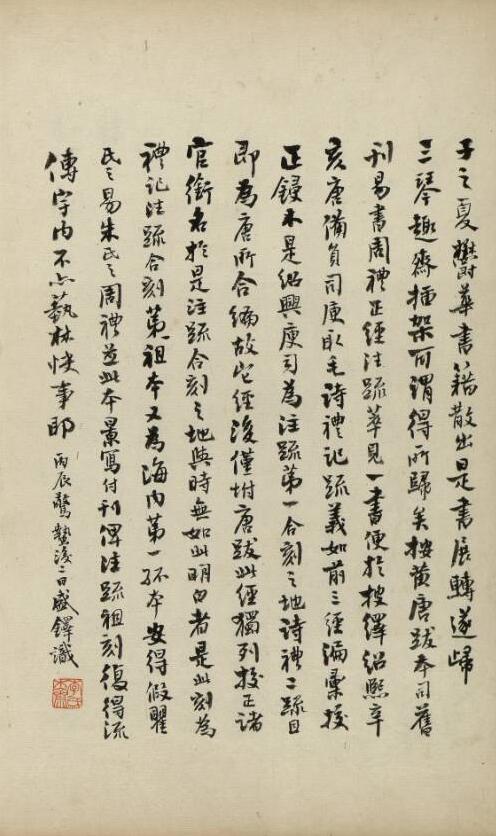 子之夏鬱華書籍散出是書展轉遂歸
三琴趣齋插架可謂得所歸矣按黃唐跋本司舊
刊易書周禮正經注疏萃見一書便於披繹紹熙辛
亥唐備員司庾取毛詩禮記疏義如前三經編彙校
正鋟木是紹興庾司為注疏第一合刻之地詩禮二疏目
即為唐所合編故它經後僅坿唐跋此經獨列校正諸
官銜名於是注疏合刻之地與時無如此明白者是此刻為
禮記注疏合刻第一祖本又為海內第一孤本安得假瞿
氏之易朱氏之周禮並此本景寫付刊俾注疏祖刻復得流
傳宇內不亦藝林快事耶 丙辰驚蟄後二日盛鐸識